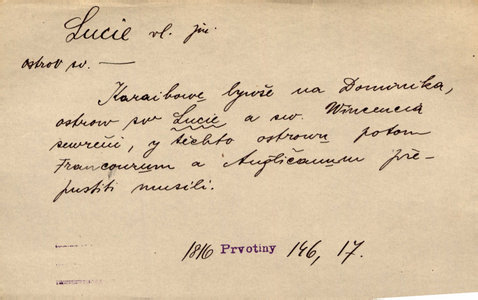 Lucie vl. jm.
ostrov sv. —
Karaibowe bywše na Dominika,
ostrow sv Lucie a sw. Wincencia
sewřeni, y těchto ostrowů potom
Francouzum a Angličanum pře-
pustiti musili.
1816 Prvotiny 146, 17.